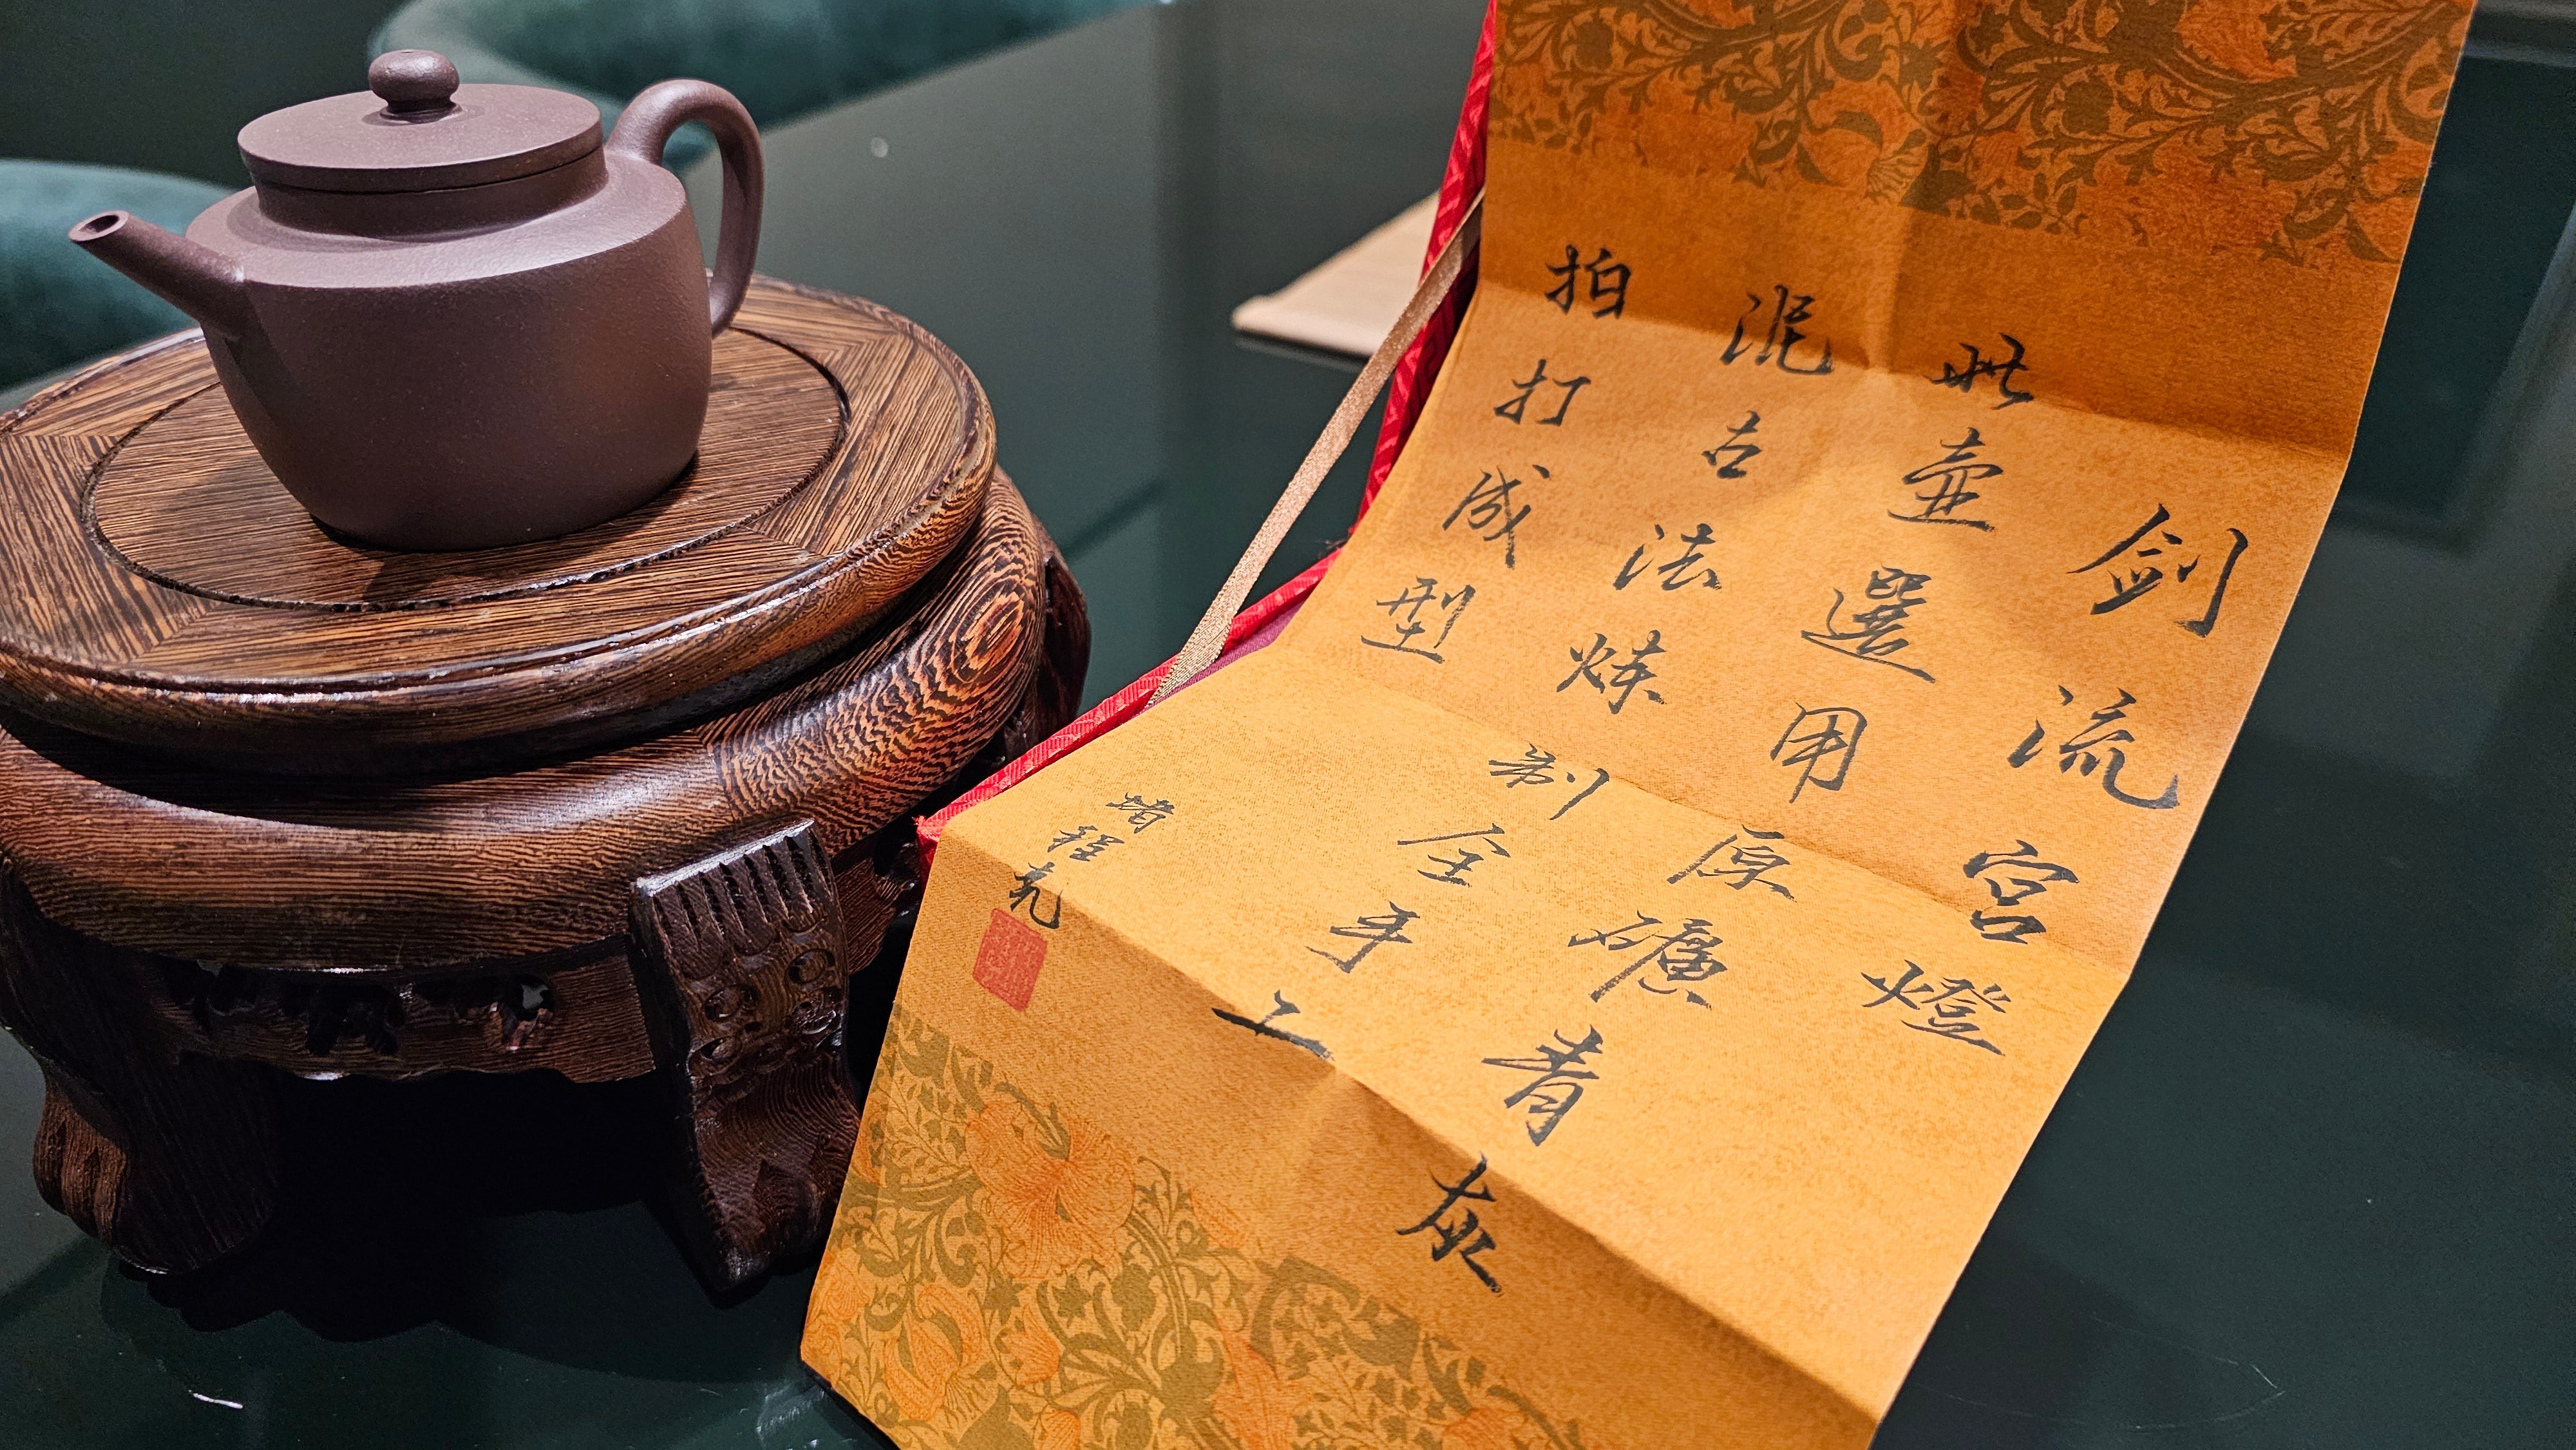 剑流宫燈
此壶選用原礦青灰
泥古法炼制全手工
拍打成型
堵程尧